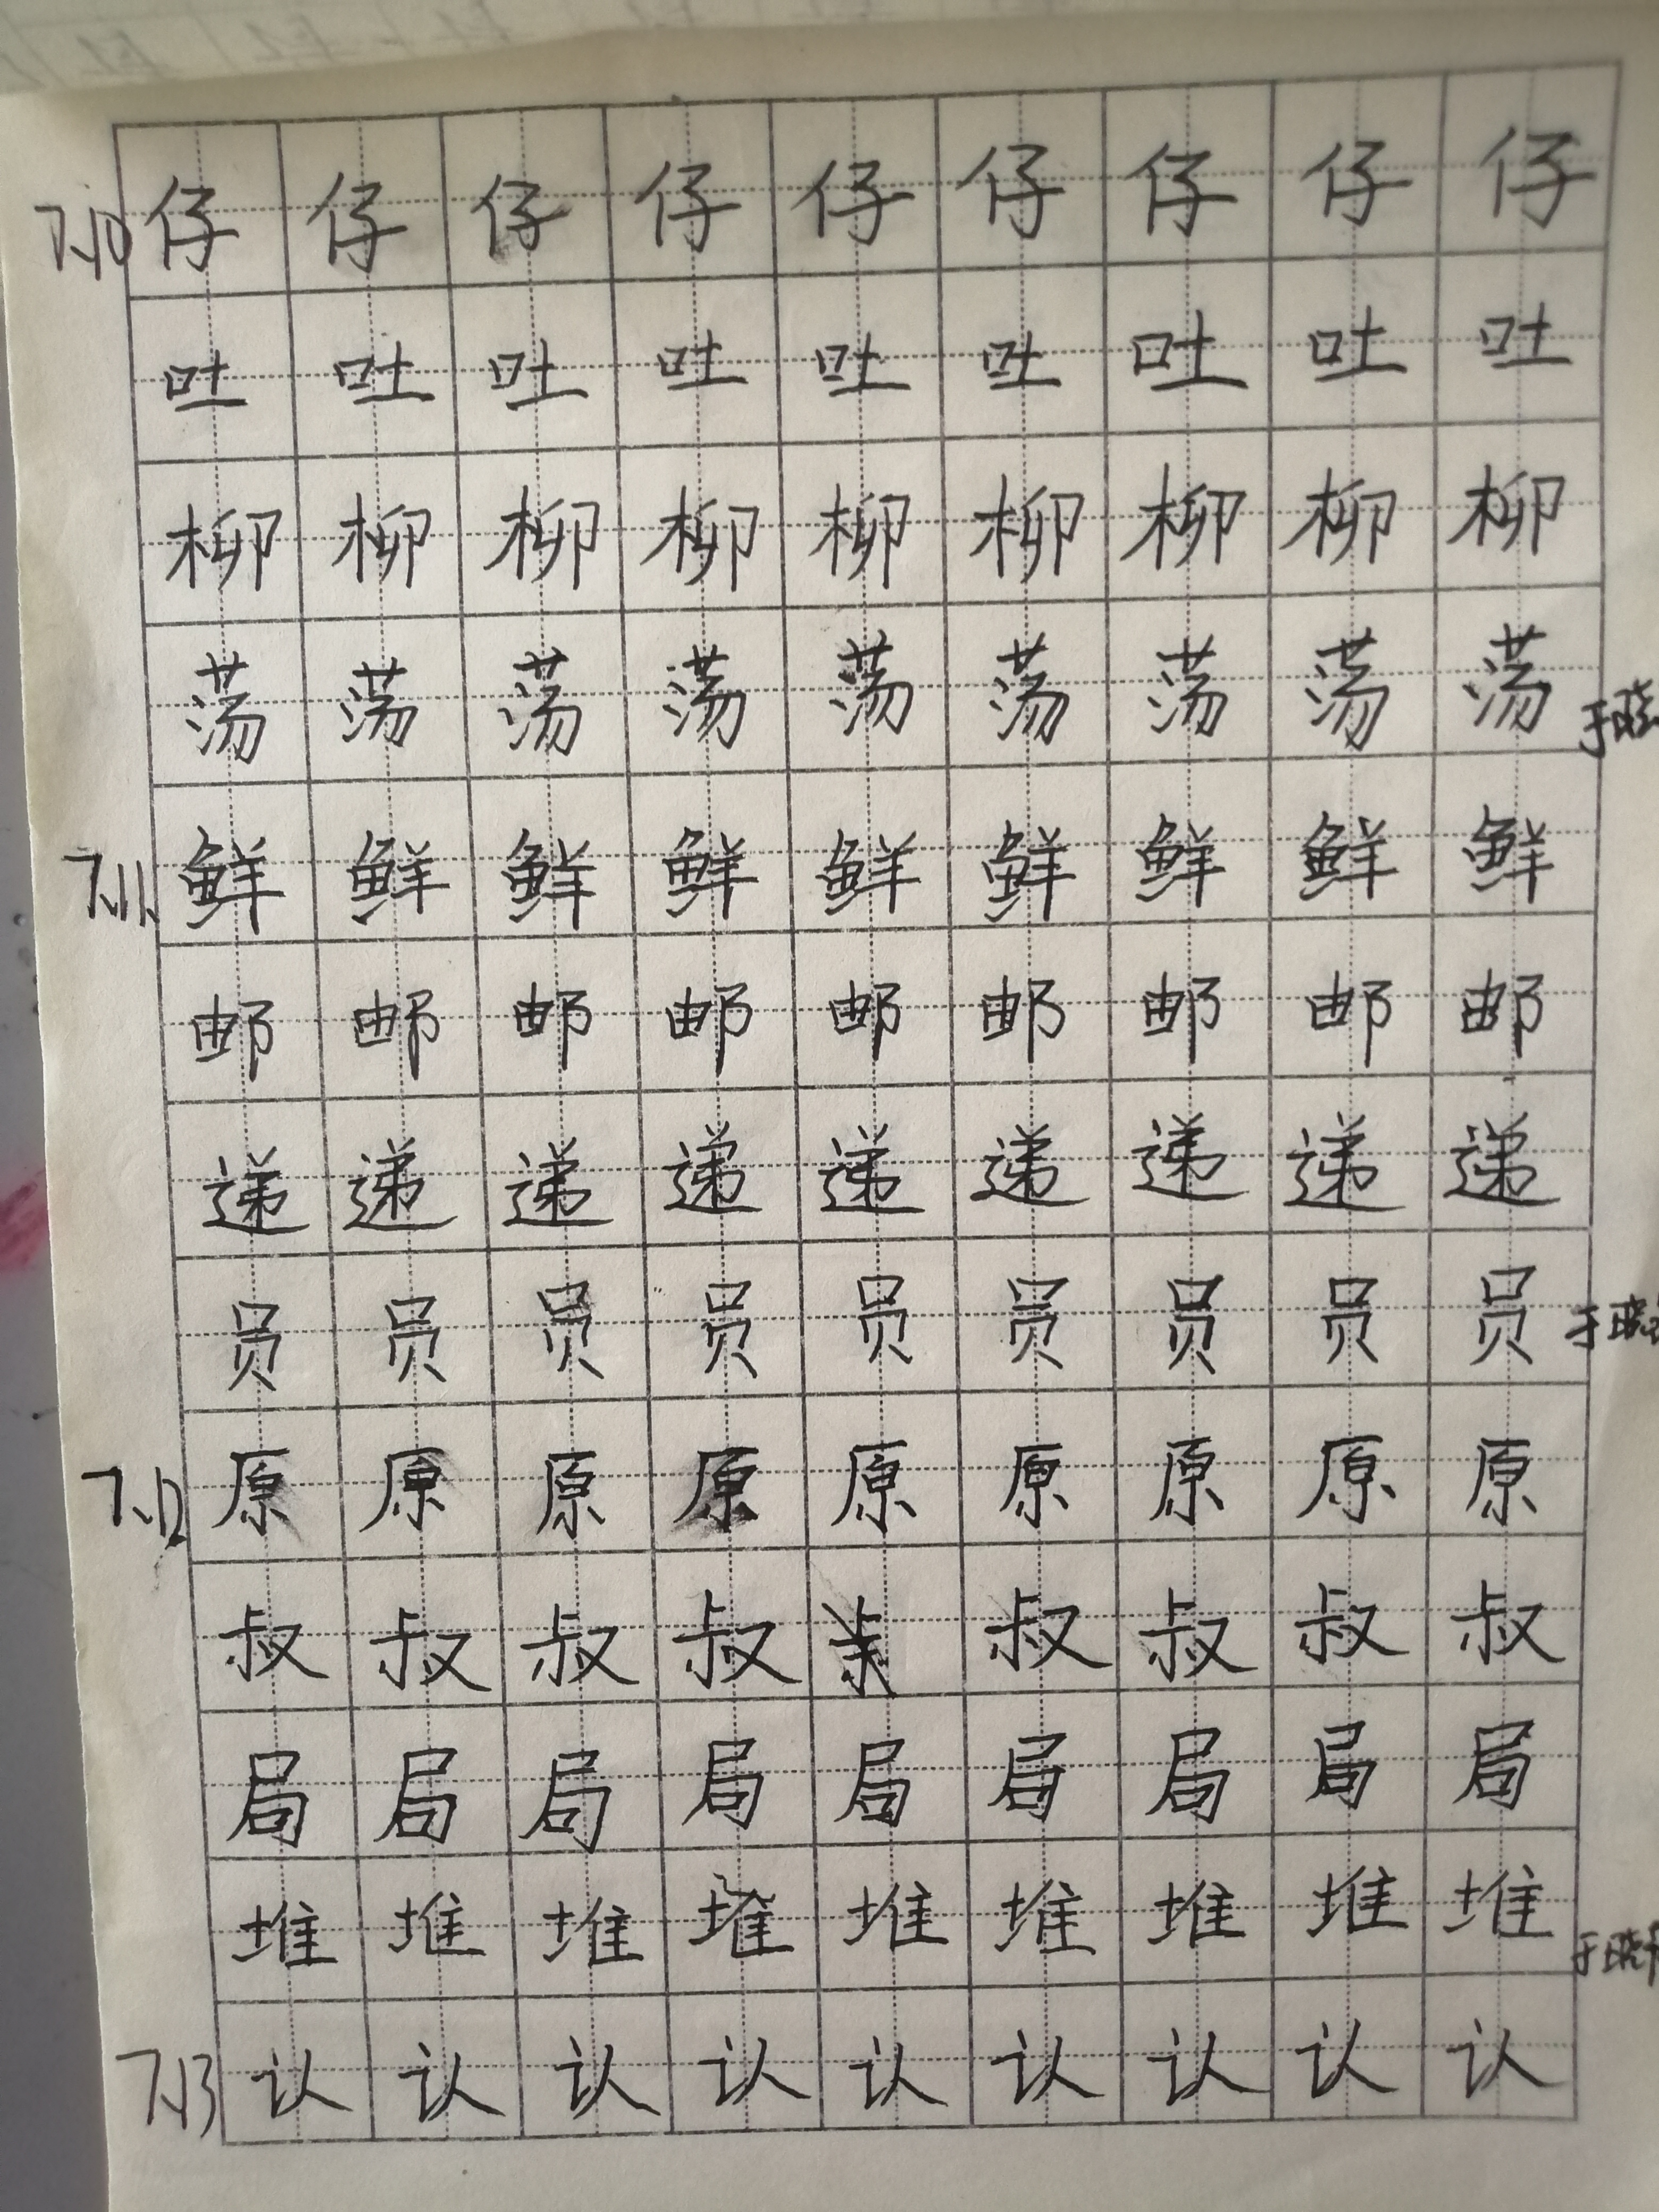 7.10 仔 仔 仔 仔 仔 仔 仔 仔 仔
吐 吐 吐 吐 吐 吐 吐 吐 吐
柳 柳 柳 柳 柳 柳 柳 柳 柳
荡 荡 荡 荡 荡 荡 荡 荡 荡 于晓
7.11 鲜 鲜 鲜 鲜 鲜 鲜 鲜 鲜 鲜
邮 邮 邮 邮 邮 邮 邮 邮 邮
递 递 递 递 递 递 递 递 递
员 员 员 员 员 员 员 员 员 于晓
7.12 原 原 原 原 原 原 原 原 原
叔 叔 叔 叔 叔 叔 叔 叔
局 局 局 局 局 局 局 局 局
堆 堆 堆 堆 堆 堆 堆 堆 堆 于晓
7.13 认 认 认 认 认 认 认 认 认